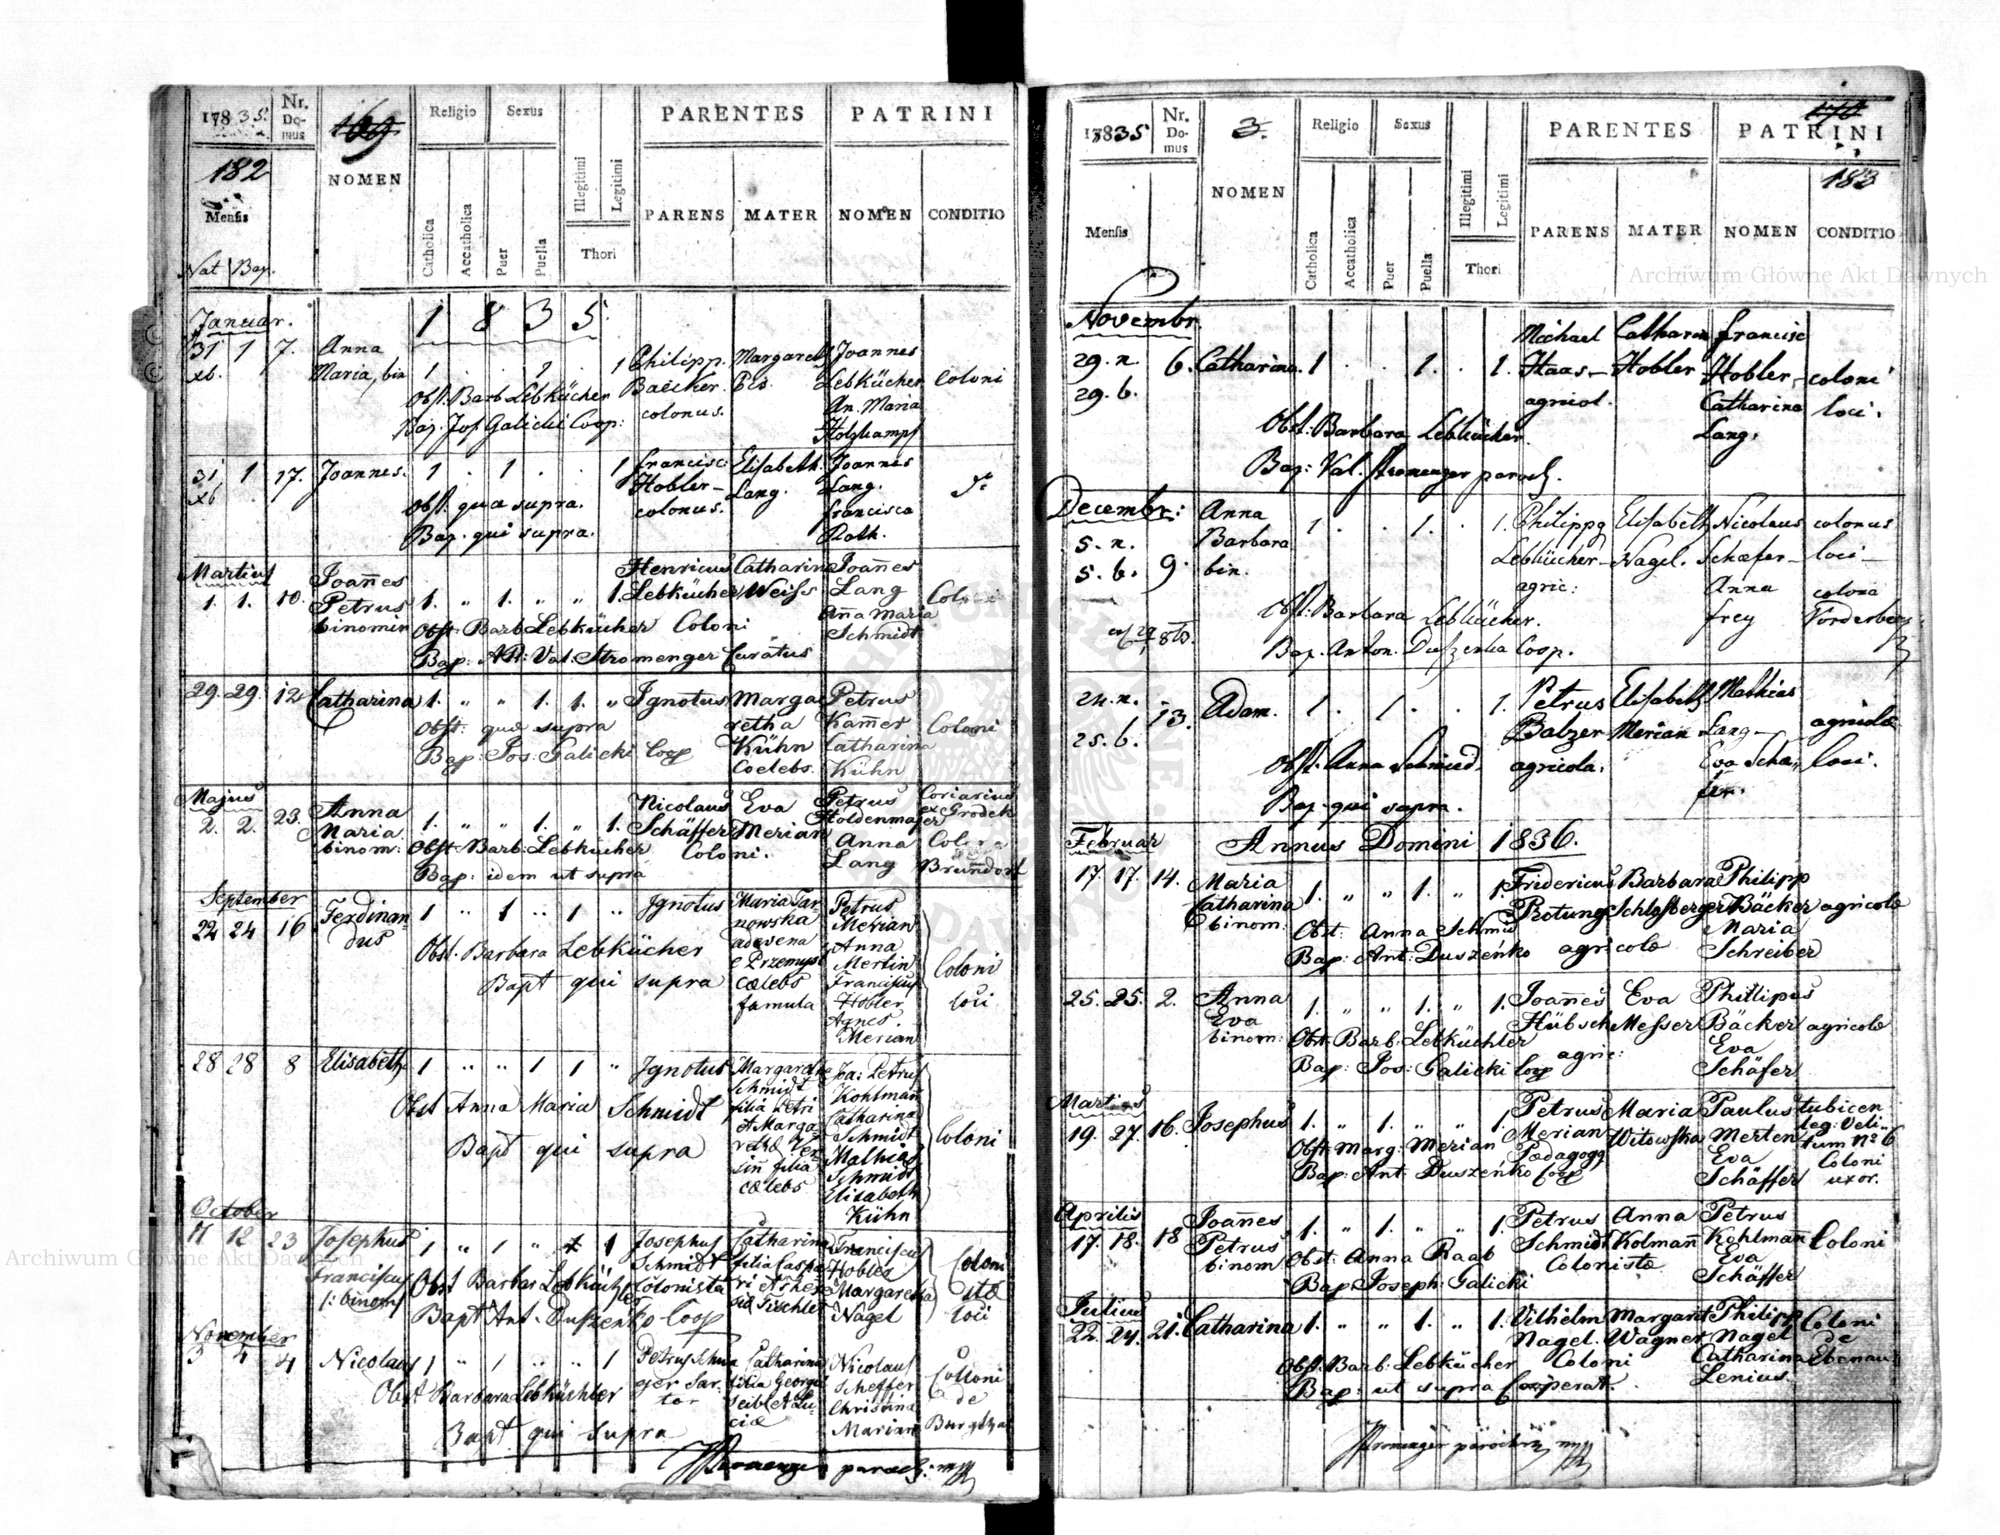 17835.
Nr. Domus
169
Religio
Sexus
PARENTES
PATRINI
182
NOMEN
Mensis
Catholica
Accatholica
Puer
Puella
Illegitimi
Legitimi
Thori
PARENS
MATER
NOMEN
CONDITIO
Nat Bap.
Januar. 1 8 3 5
31 1 7. Anna Philipp. Margareth Joannes
xb. Maria, bin 1 . . 1 . 1 Baecker. Lebkücher Coloni
Obst. Barb Lebkücher colonus. An. Maria
Bap. Jos Galicki Coop: Holzkampf
31 1 17. Joannes. 1 . 1 . . 1 Francisc: Elisabeth. Joannes
xb Hobler Lang. Lang.
Obst. qua supra. colonus. Francisca
Bap. qui supra. Roth.
Martius Joañes Henricus Catharina Joañes
1. 1. 10. Petrus 1. " 1. " " 1. Lebkücher Weiss Lang Coloni
binomin Obst Barb Lebkücher Coloni Aña Maria
Schmidt
Bap: Val. Stromenger Curatus
29. 29. 12 Catharina 1. " " 1. 1. " Ignotus Marga Petrus
Obst: qua supra retha Kam̃er Coloni
Bap: Jos: Galicki Coop Kühn Catharina
Coelebs. Kühn
Majus Anna Nicolaus Eva Petrus Coriarius
2. 2. 23. Maria 1. " " 1. " 1. Schäffer Merian Holdenmajer ex Grodek
binom: Obst. Barb: Lebkücher Coloni. Anna Colona
Bap: idem ut supra Lang Brundorf
September Ferdinan Ignotus Maria Tar Petrus
22 24 16 dus 1 " 1 " 1 " nowska Merian
Obst. Barbara Lebkücher advena Anna
e Przemysl Mertin Coloni
Bapt qui supra cœlebs Franciscus loci
famula Hobler
Agnes.
Merian
28 28 8 Elisabeth 1 " " 1 1 " Ignotus Margaretha Joa: Petrus
Schmidt Kohlman
Obst Anna Maria Schmidt filia Petri Catharina
et Marga Schmidt Coloni
Bapt qui supra retha Mathias
filia Schmidt
cœlebs Elisabeth
Kühn
October
11 12 23 Josephus 1 " 1 " 1 Josephus Catharina Franciscus
Franciscus Schmidt filia Caspa Hobler Coloni
/: binom Obst Barbar Lebküchler Colonista ri Margaretha
Bapt Ant. Duszenko Coop Nagel loci
November
3 4 4 Nicolaus 1 " 1 " " 1 Petrus Catharina Nicolaus Colloni
Obst Barbara Lebküchler ger Sar filia Georgii Scheffer de
tor Seibl et Lu Christina Burgthal
Bapt qui supra ciæ Mariann
Stromenger paroch: mp
17835
Nr. Domus
3.
Religio
Sexus
PARENTES
PATRINI
170
183
NOMEN
Mensis
Catholica
Accatholica
Puer
Puella
Illegitimi
Legitimi
Thori
PARENS
MATER
NOMEN
CONDITIO
Novembr. Michael Catharin Francisc
29. n. 6. Catharina. 1 . . 1. . 1. Haas Hobler Hobler coloni
29. b. agricol. Catharina loci.
Obst: Barbara Lebkücher. Lang.
Bap: Val. Stromenger paroch.
Decembr: Anna 1 . . 1. . 1. Philippg Elisabeth Nicolaus colonus
5. n. Barbara Lebkücher Nagel. Schæfer loci
5. b. 9. bin. agric: Anna colona
Obst: Barbara Lebkücher. Frey Vorderberg
Bap. Anton. Duszenka Coop.
24. n. 13. Adam. 1. . 1. . . 1. Petrus Elisabeth Mathias
25. b. Balzer Merian Lang agricolæ
Obst: Anna Schmied. agricola. Eva Schä loci.
Bap. qui supra. fer.
Februar Annus Domini 1836.
17. 17. 14. Maria Fridericus Barbara Philipp
Catharina 1. " " 1. " 1. Rotung Schlosberger Bäcker agricolæ
binom. Obst: Anna Schmid Maria
Bap: Ant: Duszeńko agricolæ Schreiber
25. 25. 2. Anna 1. " " 1. " 1. Joañes Eva Phillipus
Eva Hübsch Messer Bäcker agricolæ
binom. Obst Barb: Lebküchler Eva
Bap: Jos: Galicki Coop agric: Schäfer
Martius
19. 27. 16. Josephus 1. " 1. " " 1. Petrus Maria Paulus tubicen
Merian Witowska Merten leg: Veli
Obst: Marg: Merian Pædagogg Eva tum No 6
Bap: Ant: Duszeńko Coop Schäffer Coloni
uxor.
Aprilis Joañes Petrus Anna Petrus
17. 18. 18 Petrus 1. " 1. " " 1. Schmidt Kolmañ Kohlmañ Coloni
binom Obst: Anna Raab Colonistæ Eva
Bap Joseph: Galicki Schäffer
Julius
22. 24. 21. Catharina 1. " " 1. " 1. Vilhelm Margaret Philipp Coloni
Nagel. Wagner Nagel de
Obst. Barb: Lebkücher Coloni Catharina Ebenau
Bap: ut supra Cooperat. Lenius.
Stromenger parochus mp
Archiwum Główne Akt Dawnych
Archiwum Główne Akt Dawnych